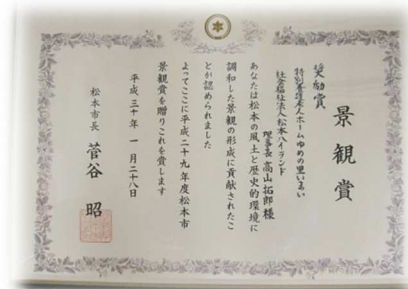 景観賞
奨励賞
特別養護老人ホームゆめの里いまい
社会福祉法人松本ハイランド
理事長 高山拓郎様
あなたは松本の風土と歴史的環境に
調和した景観の形成に貢献されたこ
とが認められました
よってここに平成二十九年度松本市
景観賞を贈りこれを賞します
平成三十年 一月二十八日
松本市長 菅谷 昭